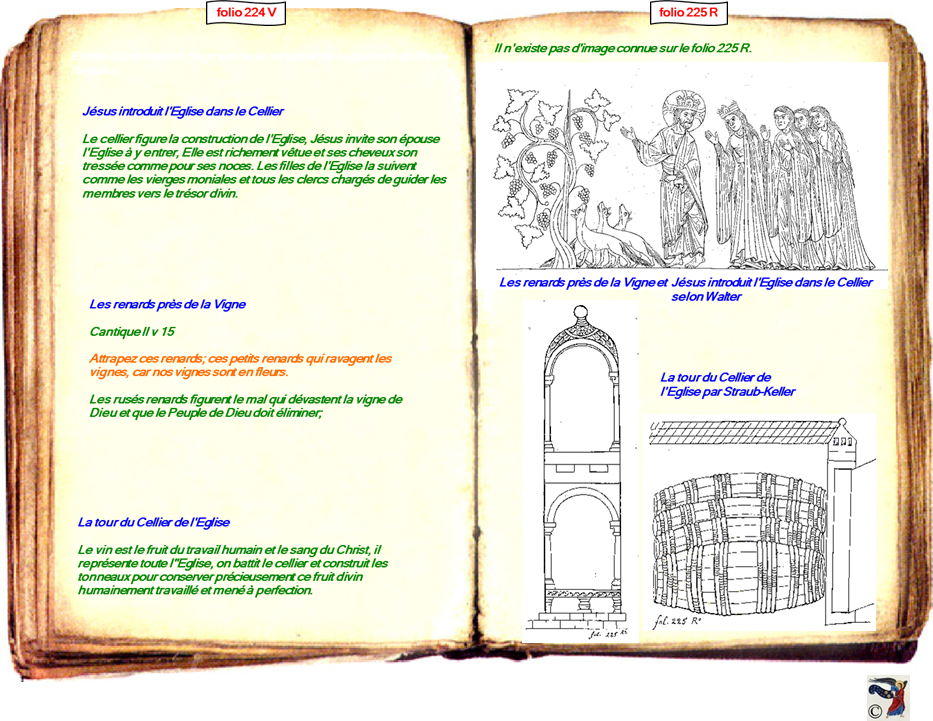 folio 224 V
Jésus introduit l'Eglise dans le Cellier
Le cellier figure la construction de l'Eglise, Jésus invite son épouse
l'Eglise à y entrer, Elle est richement vêtue et ses cheveux son
tressée comme pour ses noces. Les filles de l'Eglise la suivent
comme les vierges moniales et tous les clercs chargés de guider les
membres vers le trésor divin.
Les renards près de la Vigne
Cantique II v 15
Attrapez ces renards; ces petits renards qui ravagent les
vignes, car nos vignes sont en fleurs.
Les rusés renards figurent le mal qui dévastent la vigne de
Dieu et que le Peuple de Dieu doit éliminer;
La tour du Cellier de l'Eglise
Le vin est le fruit du travail humain et le sang du Christ, il
représente toute l"Eglise, on battit le cellier et construit les
tonneaux pour conserver précieusement ce fruit divin
humainement travaillé et mené à perfection.
folio 225 R
Il n'existe pas d'image connue sur le folio 225 R.
Les renards près de la Vigne et Jésus introduit l'Eglise dans le Cellier
selon Walter
La tour du Cellier de
l'Eglise par Straub-Keller
fol. 225 R°
fol. 225 R°
©